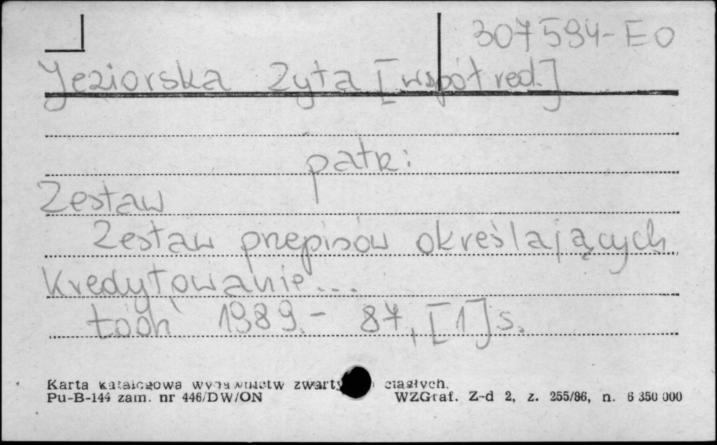 307594-EO
Jeziorska Zyta [współred.]
patrz:
Zestaw
Zestaw przepisów określających
kredytowanie...
Łódń 1989.- 87, [1] s.
Karta katalogowa wydawnictw zwarty ciągłych.
Pu-B-144 zam. nr 446/DW/ON WZGraf. Z-d 2, z. 255/86, n. 6 350 000